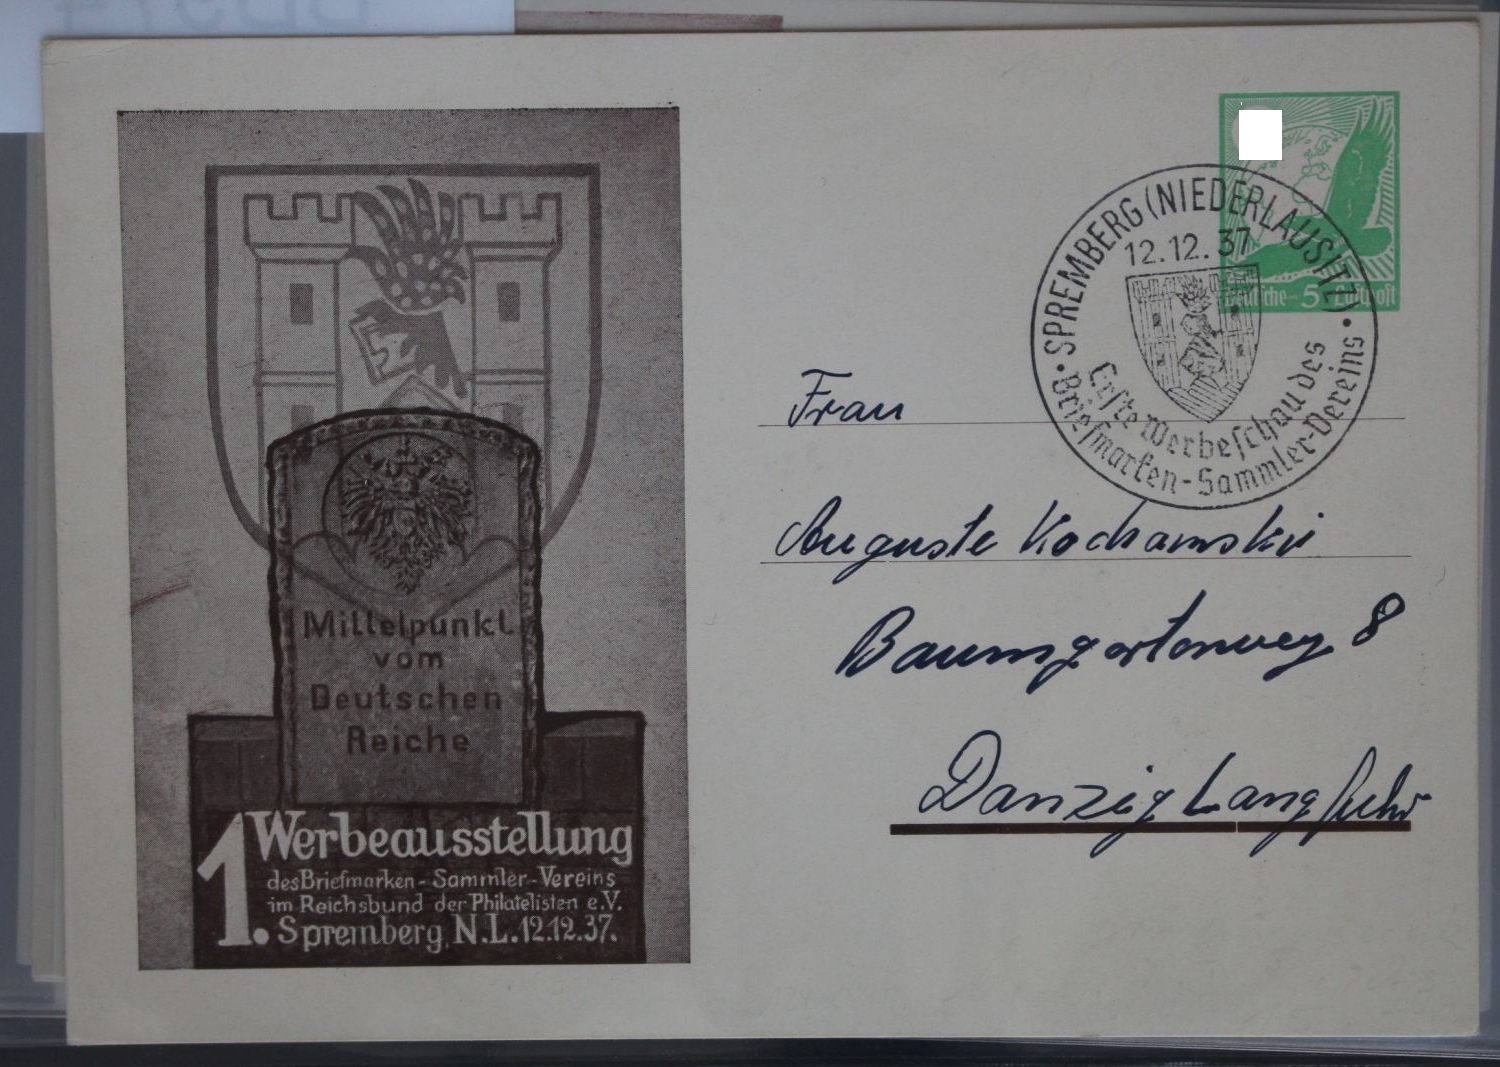 Mittelpunkt
vom
Deutschen
Reiche
1. Werbeausstellung
des Briefmarken-Sammler-Vereins
im Reichsbund der Philatelisten e.V.
Spremberg, N.L. 12.12.37.
Deutsche - 5 - Luftpost
• SPREMBERG (NIEDERLAUSITZ) •
12.12.37
Erste Werbeschau des
Briefmarken-Sammler-Vereins
Frau
Auguste Kochanski
Baumgartenweg 8
Danzig Langfuhr